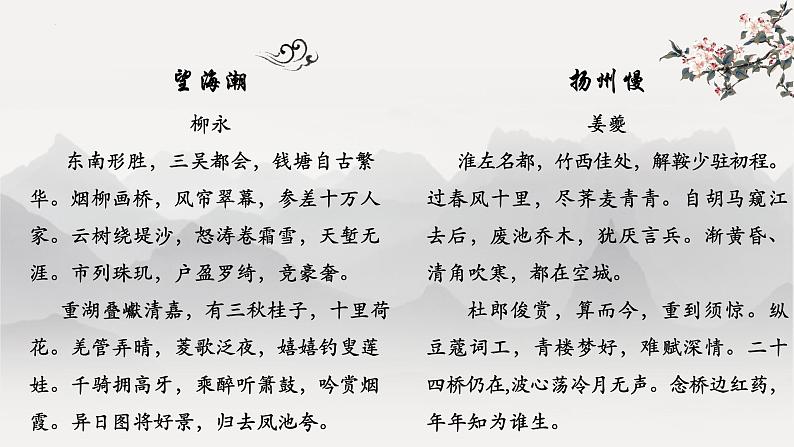 望海潮
柳永
东南形胜，三吴都会，钱塘自古繁
华。烟柳画桥，风帘翠幕，参差十万人
家。云树绕堤沙，怒涛卷霜雪，天堑无
涯。市列珠玑，户盈罗绮，竞豪奢。
重湖叠巘清嘉，有三秋桂子，十里荷
花。羌管弄晴，菱歌泛夜，嬉嬉钓叟莲
娃。千骑拥高牙，乘醉听箫鼓，吟赏烟
霞。异日图将好景，归去凤池夸。
扬州慢
姜夔
淮左名都，竹西佳处，解鞍少驻初程。
过春风十里，尽荠麦青青。自胡马窥江
去后，废池乔木，犹厌言兵。渐黄昏、
清角吹寒，都在空城。
杜郎俊赏，算而今，重到须惊。纵
豆蔻词工，青楼梦好，难赋深情。二十
四桥仍在,波心荡冷月无声。念桥边红药，
年年知为谁生。